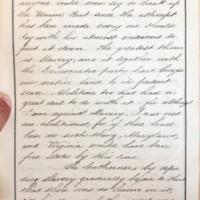 anyone could ever try to break up
the Union. But such the attempt
has been made, every one should
try with his utmost endeavors to
put it down. The greatest them
is Slavery, and it together with
the Democratic party has brought
our nation to its present
state. Abolition too has had a
great deal to do with it. for although
I am against Slavery, I am not
an abolitionist, for if there had
been no such thing, Maryland,
and Virginia would have been
free States by this time.
The Southerners by
slavery gradually
that there was no in it,